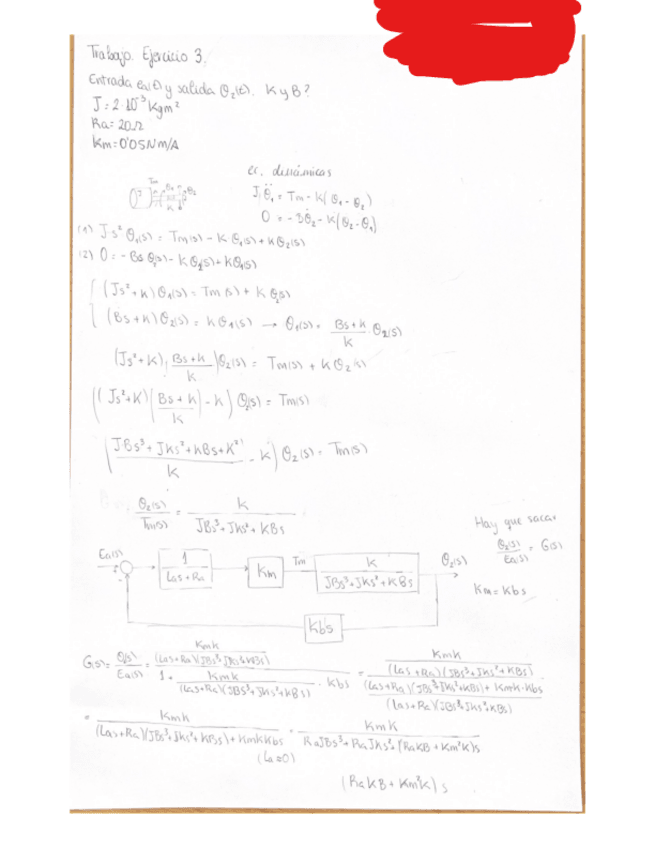 Trabajo. Ejercicio 3.
Entrada ea(t) y salida θ₂(t). K y B?
J = 2·10⁻³ Kgm²
Ra = 20Ω
Km = 0'05 Nm/A
ec. dinámicas
Jθ̈₁ = Tm - K(θ₁ - θ₂)
0 = -Bθ̇₂ - K(θ₂ - θ₁)
Tm
θ₂
(1) J·s² θ₁(s) = Tm(s) - K θ₁(s) + K θ₂(s)
(2) 0 = -Bs θ₂(s) - K θ₂(s) + K θ₁(s)
(Js² + K) θ₁(s) = Tm(s) + K θ₂(s)
(Bs + K) θ₂(s) = K θ₁(s) → θ₁(s) = (Bs + K)/K · θ₂(s)
(Js² + K) · ((Bs + K)/K) θ₂(s) = Tm(s) + K θ₂(s)
((Js² + K) ((Bs + K)/K) - K) θ₂(s) = Tm(s)
((JBs³ + JKs² + KBs + K²)/K - K) θ₂(s) = Tm(s)
θ₂(s)/Tm(s) = K/(JBs³ + JKs² + KBs)
Hay que sacar
θ₂(s)/Ea(s) = G(s)
Km = Kbs
Ea(s)
1/(Las + Ra)
Km
Tm
K/(JBs³ + JKs² + KBs)
θ₂(s)
Kbs
G(s) = θ₂(s)/Ea(s) = (KmK/((Las + Ra)(JBs³ + JKs² + KBs)))/(1 + KmK/((Las + Ra)(JBs³ + JKs² + KBs)) · Kbs) = (KmK/((Las + Ra)(JBs³ + JKs² + KBs)))/(((Las + Ra)(JBs³ + JKs² + KBs) + KmK·Kbs)/((Las + Ra)(JBs³ + JKs² + KBs)))
= KmK/((Las + Ra)(JBs³ + JKs² + KBs) + KmKKbs) = KmK/(RaJBs³ + RaJKs² + (RaKB + Km²K)s)
(La=0)
(RaKB + Km²K) s